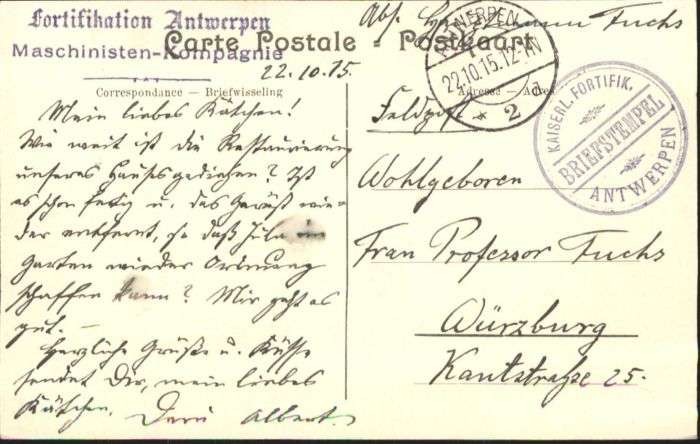 Fortifikation Antwerpen
Maschinisten-Kompagnie
Carte Postale - Postkaart
Abs. Fuchs
22.10.15.
Correspondance — Briefwisseling
Adresse — Adres
ANTWERPEN
22.10.15.12-1N
* 2 d
KAISERL. FORTIFIK.
BRIEFSTEMPEL
ANTWERPEN
Mein liebes Kätchen!
Wie weit ist die Restaurierung
unseres Hauses gediehen? Ist
es schon fertig u. das Gerüst wie-
der entfernt, so daß Jula im
Garten wieder Ordnung
schaffen kann? Mir geht es
gut. —
Herzliche Grüße u. Küsse
sendet Dir, mein liebes
Kätchen, Dein Albert
Feldpost
Wohlgeboren
Frau Professor Fuchs
Würzburg
Kantstraße 25.